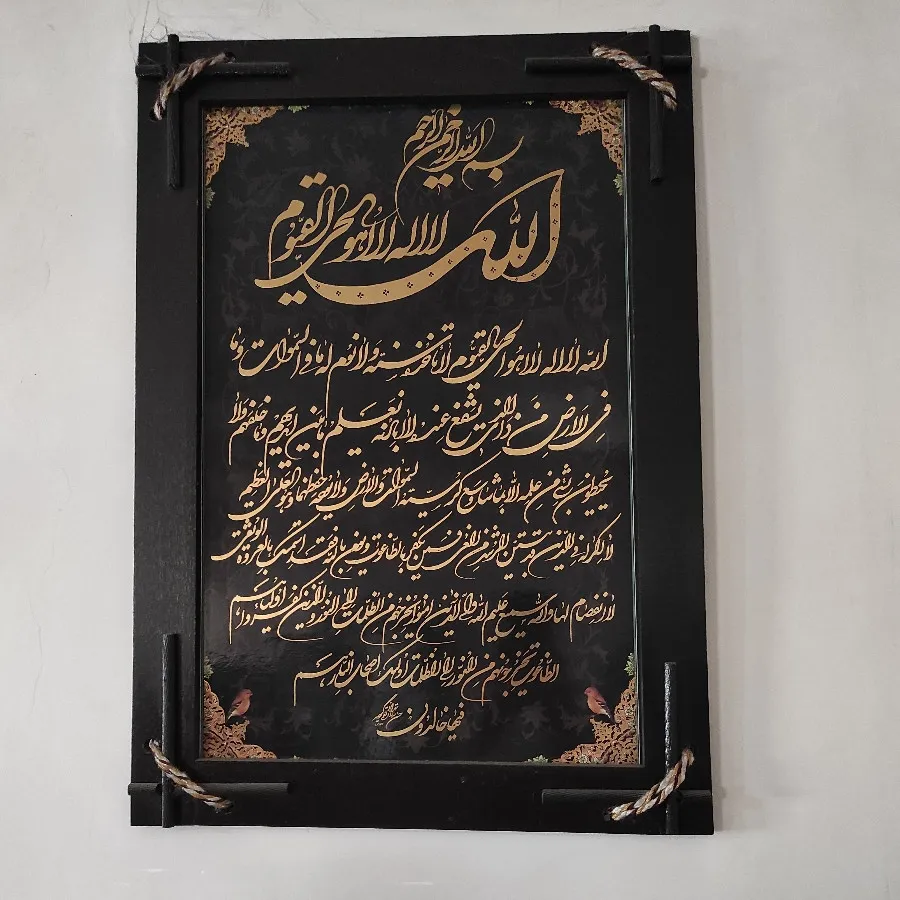 بسم الله الرحمن الرحیم
الله لا اله الا هو الحی القیوم
الله لا اله الا هو الحی القیوم لا تاخذه سنة ولا نوم له ما فی السموات وما
فی الارض من ذا الذی یشفع عنده الا باذنه یعلم ما بین ایدیهم وما خلفهم ولا
یحیطون بشیء من علمه الا بما شاء وسع کرسیه السموات والارض ولا یوده حفظهما وهو العلی العظیم
لا اکراه فی الدین قد تبین الرشد من الغی فمن یکفر بالطاغوت ویومن بالله فقد استمسک بالعروة الوثقی
لا انفصام لها والله سمیع علیم الله ولی الذین امنوا یخرجهم من الظلمات الی النور والذین کفروا اولیاوهم
الطاغوت یخرجونهم من النور الی الظلمات اولئک اصحاب النار هم
فیها خالدون